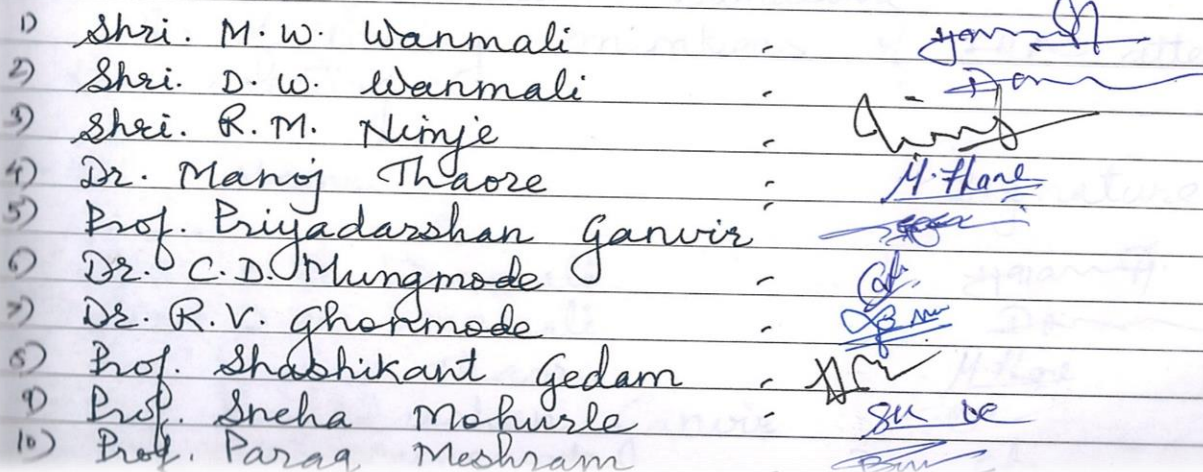 1) Shri. M. W. Wanmali -
2) Shri. D. W. Wanmali -
3) Shri. R. M. Nimje -
4) Dr. Manoj Thaore - M. Thaore
5) Prof. Priyadarshan Ganvir -
6) Dr. C. D. Mungmode -
7) Dr. R. V. Ghonmode -
8) Prof. Shashikant Gedam -
9) Prof. Sneha Mohurle -
10) Prof. Parag Meshram